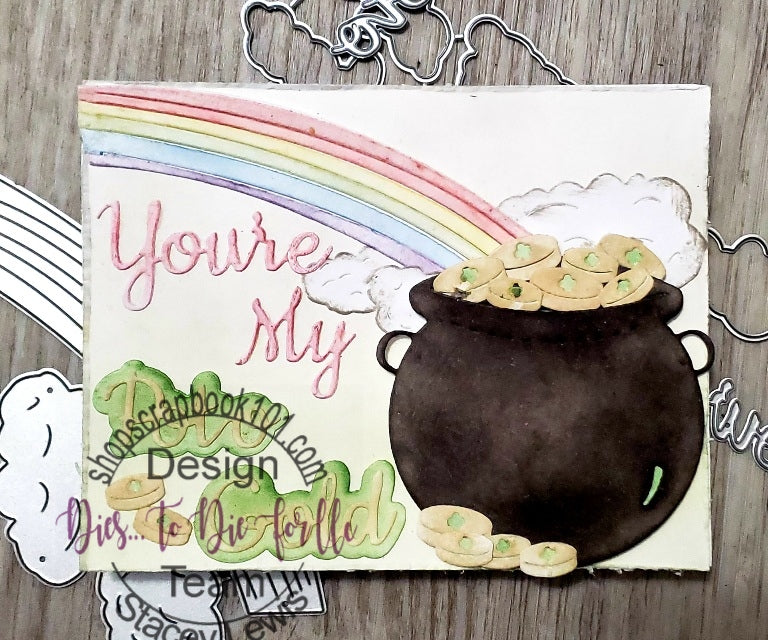 You're
My
Pot
shopscrapbook101.com
Design
Gold
Dies... to Die for llc
Team
Stacey Lewis
we